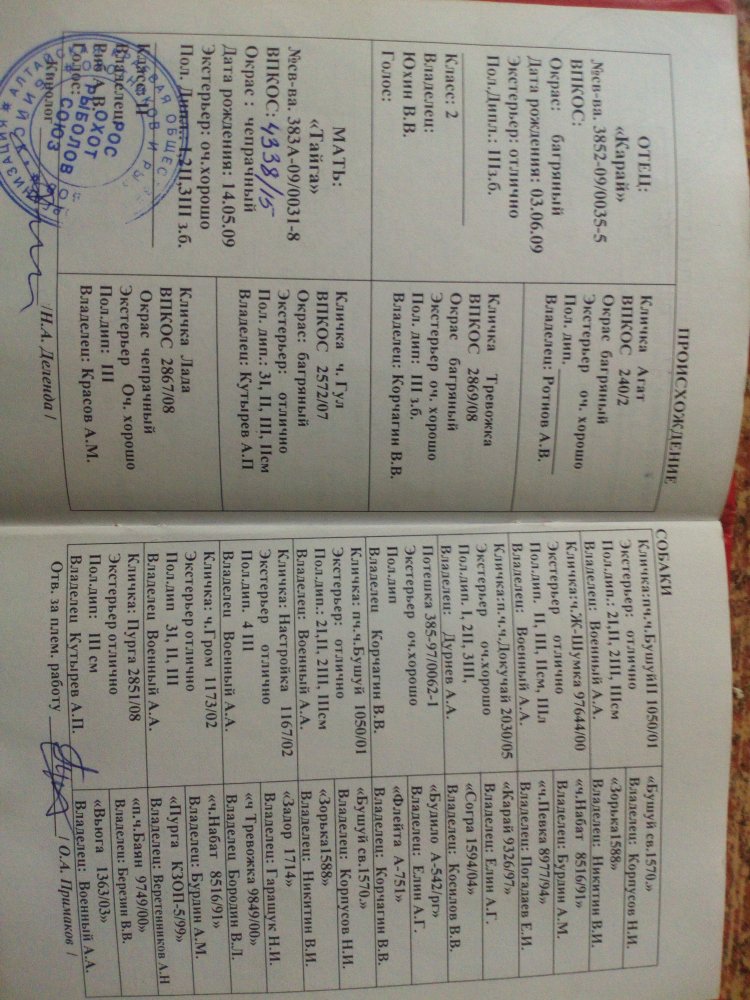 ПРОИСХОЖДЕНИЕ
ОТЕЦ:
«Карай»
№св-ва. 3852-09/0035-5
ВПКОС:
Окрас: багряный
Дата рождения: 03.06.09
Экстерьер: отлично
Пол.Дипл.: IIIз.б.
Класс: 2
Владелец:
Юхин В.В.
Голос:
МАТЬ:
«Тайга»
№св-ва. 383А-09/0031-8
ВПКОС: 4338/15
Окрас : чепрачный
Дата рождения: 14.05.09
Экстерьер: оч.хорошо
Пол. Дипл.: 1,2II,3III з.б.
Класс II
Владелец
Голос:
Кинолог /Н.А. Деленда /
РОС
ОХОТ
РЫБОЛОВ
СОЮЗ
Кличка Агат
ВПКОС 240/2
Окрас багряный
Экстерьер оч. хорошо
Пол. дип.
Владелец: Ротнов А.В.
Кличка Тревожка
ВПКОС 2869/08
Окрас багряный
Экстерьер оч. хорошо
Пол. дип.: III з.б.
Владелец: Корчагин В.В.
Кличка ч. Гул
ВПКОС 2572/07
Окрас: багряный
Экстерьер: отлично
Пол. дип.: 3I, II, III, IIсм
Владелец: Кутырев А.П
Кличка Лада
ВПКОС 2867/08
Окрас чепрачный
Экстерьер Оч. хорошо
Пол.дип: III
Владелец: Красов А.М.
СОБАКИ
Кличка:пч.ч.БушуйII 1050/01
Экстерьер: отлично
Пол.дип.: 2I,II, 2III, IIIсм
Владелец: Военный А.А.
Кличка:ч.Ж-Шумка 97644/00
Экстерьер отлично
Пол.дип. II, III, IIсм, IIIл
Владелец: Военный А.А.
Кличка:п.ч.ч.Докучай 2030/05
Экстерьер оч.хорошо
Пол.дип. I, 2II, 3III,
Владелец: Дуриев А.А.
Потешка 385-97/0062-1
Экстерьер оч.хорошо
Пол.дип
Владелец Корчагин В.В.
Кличка:пч.ч.Бушуй 1050/01
Экстерьер: отлично
Пол.дип.: 2I,II, 2III, IIIсм
Владелец: Военный А.А.
Кличка: Настройка 1167/02
Экстерьер отлично
Пол.дип. 4 III
Владелец Военный А.А.
Кличка: ч.Гром 1173/02
Экстерьер отлично
Пол.дип 3I, II, III
Владелец Военный А.А.
Кличка: Пурга 2851/08
Экстерьер отлично
Пол.дип: III см
Владелец Кутырев А.П.
Отв. за плем. работу / О.А. Примаков /
«Бушуй св.1570.»
Владелец: Корпусов Н.И.
«Зорька1588»
Владелец: Никитин В.И.
«ч.Набат 8516/91»
Владелец: Бурдин А.М.
«ч.Певка 8977/94»
Владелец: Погадаев Е.И.
«Карай 9326/97»
Владелец: Елин А.Г.
«Согра 1594/04»
Владелец: Косилов В.В.
«Будило А-542/рг»
Владелец: Елин А.Г.
«Флейта А-751»
Владелец: Корчагин В.В.
«Бушуй св.1570.»
Владелец: Корпусов Н.И.
«Зорька1588»
Владелец: Никитин В.И.
«Задор 1714»
Владелец: Гаращук Н.И.
«ч Тревожка 9849/00»
Владелец Бородин В.Л.
«ч.Набат 8516/91»
Владелец: Бурдин А.М.
«Пурга КЗОП-5/99»
Владелец: Веретенников А.Н
«п.ч.Баян 9749/00»
Владелец: Березин В.В.
«Вьюга 1363/03»
Владелец: Военный А.А.